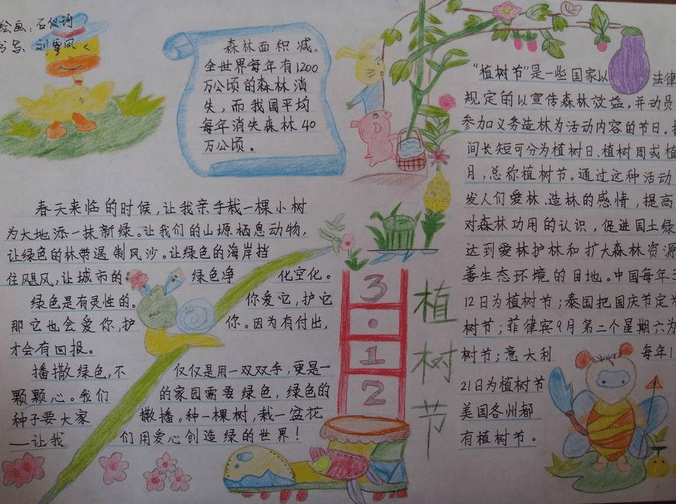 绘画：石俊琦
书写：刘
森林面积减，
全世界每年有1200
万公顷的森林消
失，而我国平均
每年消失森林40
万公顷。
春天来临的时候，让我亲手栽一棵小树
为大地添一抹新绿。让我们的山塬栖息动物，
让绿色的林带遏制风沙。让绿色的海岸挡
住飓风，让城市的绿色净化空化。
绿色是有灵性的。你爱它，护它
那它也会爱你，护你。因为有付出，
才会有回报。
播撒绿色，不仅仅是用一双双手，更是一
颗颗心。我们的家园需要绿色，绿色的
种子要大家撒播。种一棵树，栽一盆花
——让我们用爱心创造绿的世界！
3·12
植树节
“植树节”是一些国家以法律
规定的以宣传森林效益，并动员
参加义务造林为活动内容的节日。
间长短可分为植树日、植树周或植
月，总称植树节。通过这种活动
发人们爱林、造林的感情，提高
对森林功用的认识，促进国土绿
达到爱林护林和扩大森林资源
善生态环境的目地。中国每年3
12日为植树节；泰国把国庆节定为
树节；菲律宾9月第二个星期六为
树节；意大利每年1
21日为植树节
美国各州都
有植树节。